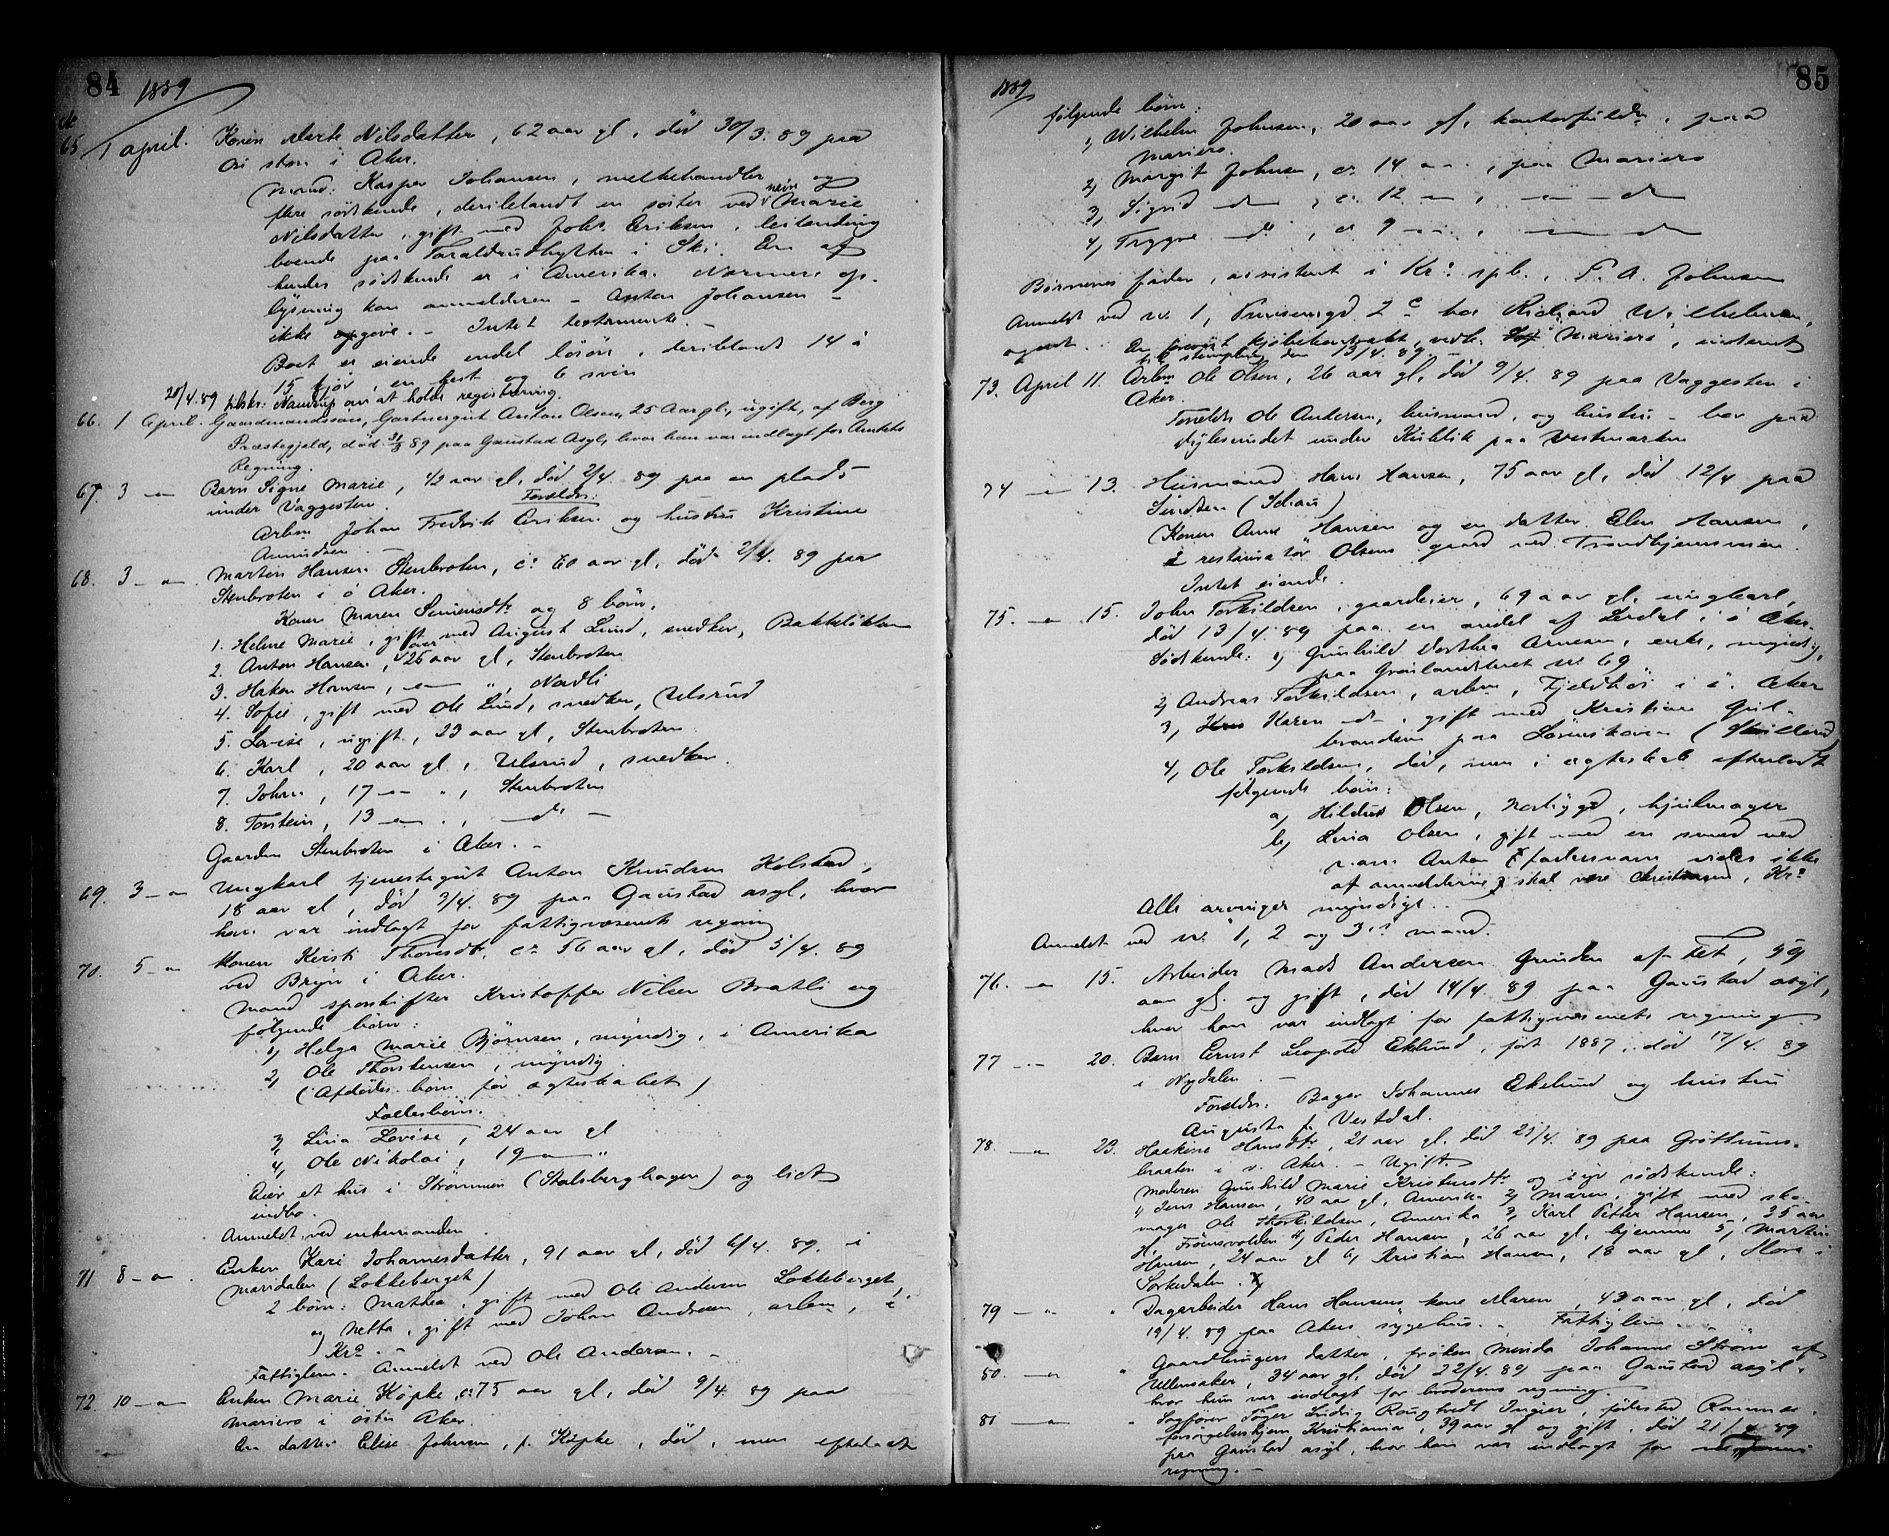 84 1889
№
65 1 april. Konen Marte Nilsdatter, 62 aar gl, död 30/3. 89 paa
stor i Aker.
Mand: Kasper Johansen, melkehandler og
flere södskende, deriblandt en söster ved navn Marie
Nilsdatter, gift med Johs. Eriksen, leilending
boende paa Taraldrudhytten i Ski. En af
hendes södskende er i Amerika. Nærmere op-
lysning kan anmelderen - Anton Johansen -
ikke opgive. - Intet testamente. -
Boet er eiende endel lösöre, deriblandt 14 à
15 kjör, en hest og 6 svin
20/4. 89 om at holde registrering.
66. 1 April. Gaardmandssön, Gartnergut Anton Olsen, 25 Aar gl., ugift, af Berg
Præstegjeld, död 89 paa Gaustad Asyl, hvor han var indlagt for Amtets
Regning.
67. 3 -"- Barn Signe Marie, 1/2 aar gl, död 2/4. 89 paa en plads
under Vaggesten. Forældre:
Arbm Johan Fredrik Eriksen og hustru Kristine
Amundsen -
68. 3 -"- Martin Hansen Stenbroten, ca 60 aar gl, död 2/4. 89 paa
Stenbroten i ö Aker.
Konen Maren Simensdtr og 8 börn.
1. Helene Marie, gift med August Lund, snedker, Bakkeløkken
2. Anton Hansen, over 25 aar gl, Stenbroten
3. Hakon Hansen, -"- ", Nordli
4. Sofie, gift med Ole Lund, snedker, Ulsrud
5. Lovise, ugift, 23 aar gl, Stenbroten
6. Karl, 20 aar gl, Ulsrud, snedker.
7. Johan, 17 -"- ", Stenbroten
8. Torstein, 13 -"- ", - do -
Gaarden Stenbroten i Aker. -
69. 3 -"- Ungkarl tjenestegut Anton Knudsen Holstad,
18 aar gl, död 2/4. 89 paa Gaustad asyl, hvor
han var indlagt for fattigvæsenets regning
70. 5 -"- Konen Kirsti Thoresdtr, ca 56 aar gl, död 5/4. 89
ved Bryn i Aker.
Mand sporskifter Kristoffer Nilsen Bratli og
følgende börn:
1, Helga Marie Björnsen, myndig, i Amerika
2, Ole Thorstensen, myndig
(Afdödes börn för ægteskabet)
Fællesbörn.
3, Lina Lovise, 24 aar gl
4, Ole Nikolai, 19 -"- "
Eier et hus i Strömmen (Stalsberghagen) og lidt
indbo.
Anmeldt ved enkemanden.
71 8 -"- Enken Kari Johannesdatter, 91 aar gl, död 6/4. 89. i
Maridalen (Løkkeberget)
2 börn: Mathea, gift med Ole Andersen Løkkeberget,
og Netta, gift med Johan Andersen, arbm, i
Kra.
Fattiglem. Anmeldt ved Ole Andersen. -
72. 10 -"- Enken Marie Köpke, ca 75 aar gl, död 9/4. 89 paa
Mariero i östre Aker.
En datter Elise Johnsen, f. Köpke, död, men efterladt
1889 85
følgende börn:
1, Wilhelm Johnsen, 20 aar gl, kontorfuldm., paa
Mariero.
2, Margit Johnsen, ca 14 -"-, paa Mariero
3, Sigrid do, ca 12 -"-, -"- do
4, Trygve do, ca 9 -"-, -"- do
Börnenes fader, assistent i Kra spb., P. A. Johnsen
Anmeldt ved nr. 1, Prinsensgd 2 c hos Richard Wilhelmsen,
agent. En kjøbekontrakt, vedk. Mariero, indsendt
til stempling den 13/4. 89 -
73. April 11. Arbm Ole Olsen, 26 aar gl, död 9/4. 89 paa Vaggesten i
Aker.
Forældre Ole Andersen, husmand, og hustru - bor paa
under Kublik paa Vestmarken
74 -"- 13. Husmand Hans Hansen, 75 aar gl, död 12/4 paa
Sindsen
(Konen Anne Hansen og en datter Elen Hansen,
restauratör Olsens gaard ved Trondhjemsveien.
Intet eiende.
75. -"- 15. John Torkildsen, gaardeier, 69 aar gl, ungkarl,
död 13/4 89 paa en andel af Lindal i ö Aker.
Södskende: 1, Gunhild Dorthea Arnesen, enke, myndig,
paa Grönlandsleret nr 69.
2, Andreas Torkildsen, arbm, Fjeldhöi i ö. Aker
3, Karen do, gift med Kristian Gul-
brandsen paa Lörenskoven
4, Ole Torkildsen, död, men i ægteskab efterladt
følgende börn:
a, Olsen, , hjulmager
b, Lina Olsen, gift med en smed ved
navn Anton (fadersnavn vides ikke
af anmelderne) skal være Christiansen, Kra
Alle arvinger myndige. -
Anmeldt ved nr. 1, 2 og 3's mand.
76. -"- 15. Arbeider Mads Andersen Grinden af Fet, 59
aar gl. og gift, död 14/4. 89 paa Gaustad asyl,
hvor han var indlagt for fattigvæsenets regning.
77 -"- 20. Barn Ernst Leopold Eklund, föt 1887, död 17/4. 89
i Nydalen. -
Forældre: Bager Johannes Ekelund og hustru
Augusta f. Vestdal.
78. -"- 23. Haakine Hansdtr, 21 aar gl. död 21/4. 89 paa Gröttums-
braaten i v. Aker. - Ugift.
Moderen Gunhild Marie Kristensdtr og södskende:
1, Jens Hansen, 40 aar gl, Amerika 2, Maren, gift med sko-
mager Ole Thorkildsen, Amerika 3, Karl Petter Hansen, 35 aar,
4, Peder Hansen, 26 aar gl, hjemme 5, Martin
Hansen, 24 aar gl 6, Kristian Hansen, 18 aar gl, Slora i
Sørkedalen.
79 -"- " Dagarbeider Hans Hansens kone Maren, 43 aar gl, död
19/4. 89 paa Akers sygehus. - Fattiglem. -
80. -"- " Gaardbrugers datter, fröken Minda Johanne Ström af
Ullensaker, 34 aar gl, död 22/4. 89 paa Gaustad asyl,
hvor hun var indlagt for broderens regning. -
81 -"- " Sagfører Ludvig Roughtvedt Ingier, födested
forsørgelseshjem Kristiania, 39 aar gl og gift, död 21/4 89
paa Gaustad asyl, hvor han var indlagt for
regning. -